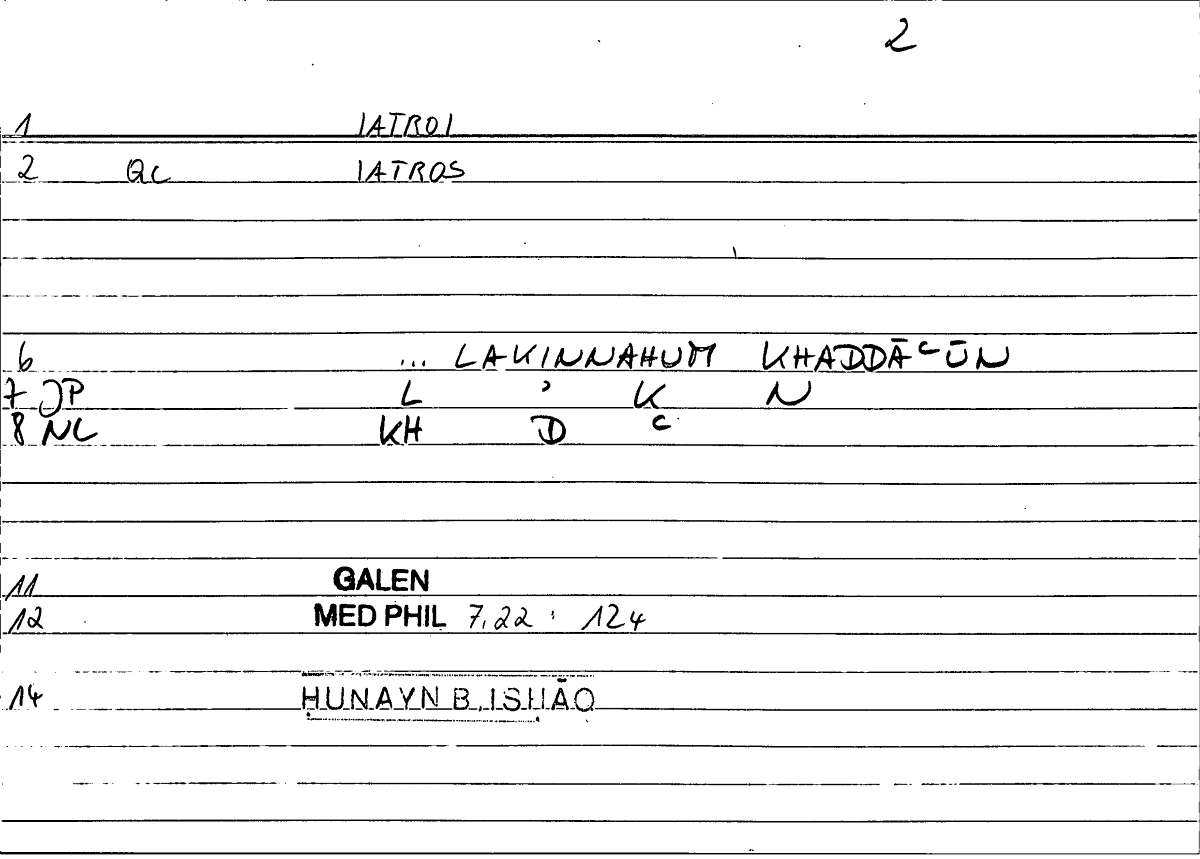 2
1 IATROI
2 QC IATROS
6 ... LAKINNAHUM KHADDĀᶜŪN
7 JP L ʾ K N
8 NL KH D ᶜ
11 GALEN
12 MED PHIL 7,22 : 124
14 ḤUNAYN B. ISḤĀQ